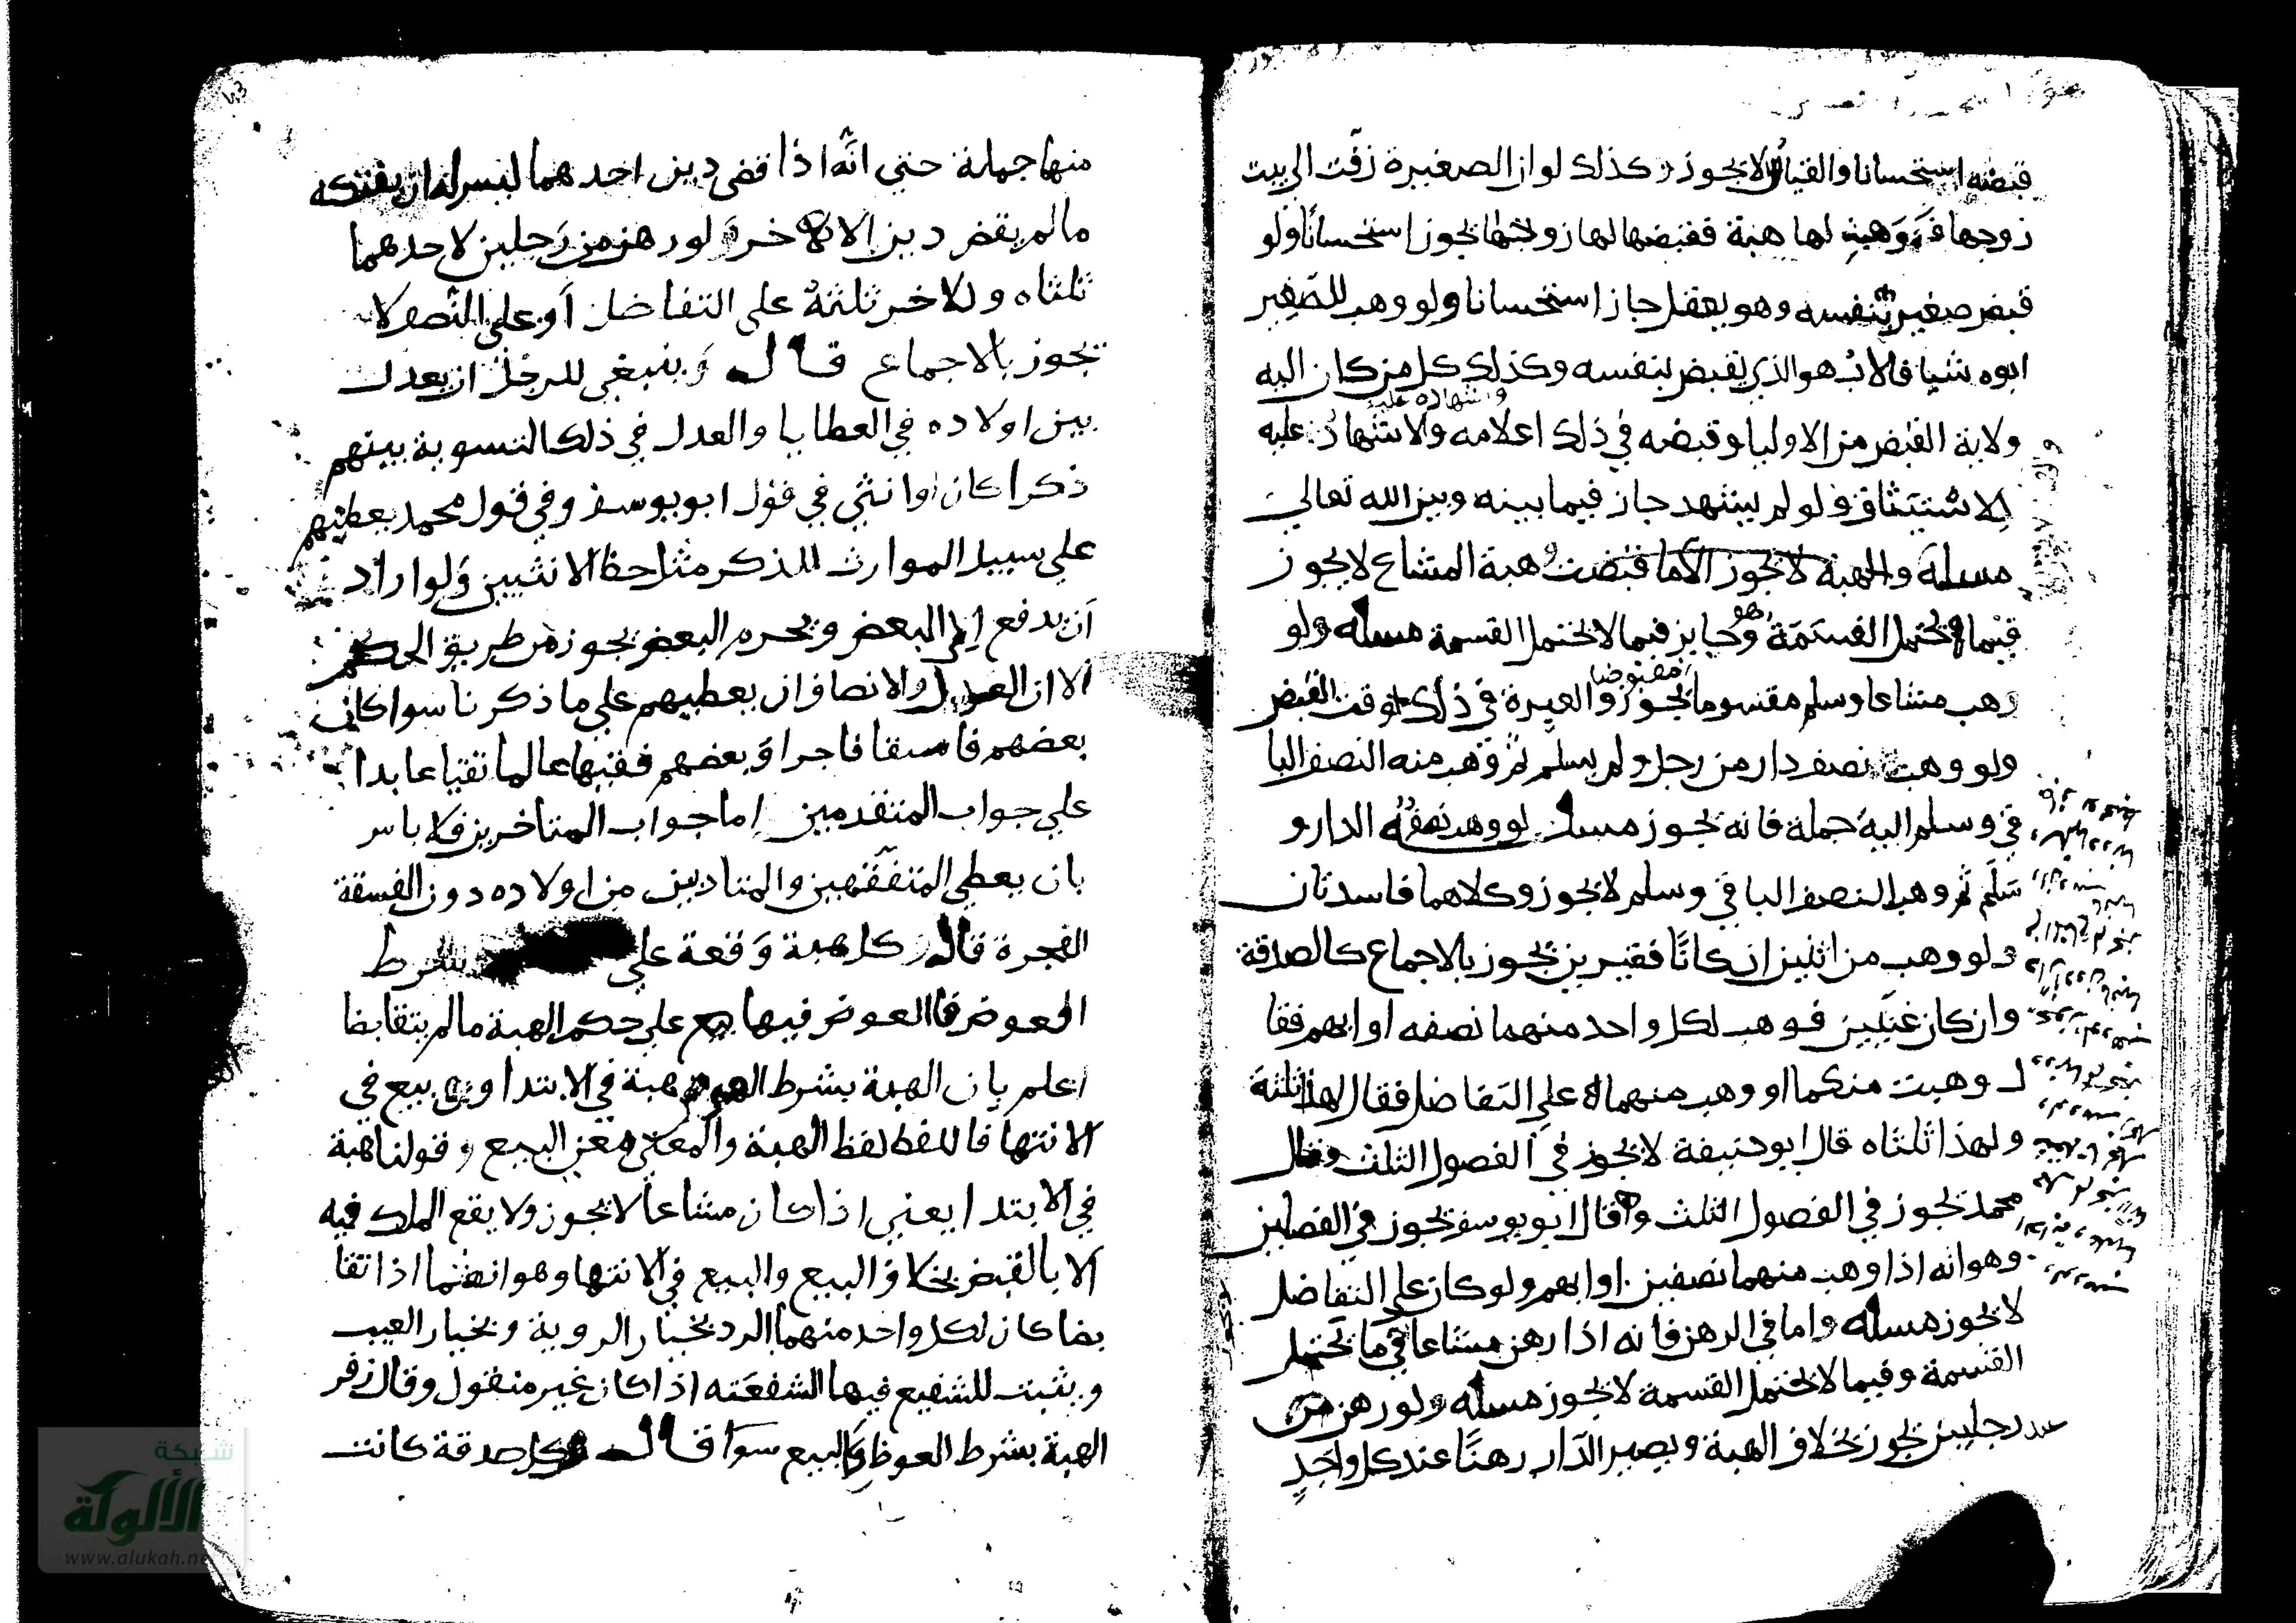 قبضه استحسانا والقياس لا يجوز وكذلك لو ان الصغيرة زفت الى بيت
زوجها فوهب لها هبة فقبضها لها زوجها يجوز استحسانا ولو
قبض صغير بنفسه وهو يعقل جاز استحسانا ولو وهب للصغير
ابوه شيا فالاب هو الذي يقبض بنفسه وكذلك كل من كان اليه
واشهاده عليه
ولاية القبض من الاوليا وقبضه في ذلك اعلامه والاشهاد عليه
الاستيثاق ولو لم يشهد جاز فيما بينه وبين الله تعالى
مسلة والهبة لا تجوز الا ما قبضت وهبة المشاع لا يجوز
فيما يحتمل القسمة وهو جايز فيما لا يحتمل القسمة مسله ولو
مقبوضا
وهب مشاعا وسلم مقسوما يجوز والعبرة في ذلك لوقت القبض
ولو وهب نصف دار من رجل ولم يسلم ثم وهب منه النصف البا
قي وسلم اليه جملة فانه يجوز مسله لو وهب نصف الدار و
سلم ثم وهب النصف الباقي وسلم لا يجوز وكلاهما فاسدتان
ولو وهب من اثنين ان كانا فقيرين يجوز بالاجماع كالصدقة
وان كان غنيين فوهب لكل واحد منهما نصفه او ابهم فقا
ل وهبت منكما او وهب منهما على التفاضل فقال لهذا ثلثة
ولهذا ثلثاه قال ابو حنيفة لا يجوز في الفصول الثلث وقال
محمد يجوز في الفصول الثلث وقال ابو يوسف يجوز في الفصلين
وهو انه اذا وهب منهما نصفين او ابهم ولو كان على التفاضل
لا يجوز مسله واما في الرهن فانه اذا رهن مشاعا في ما يحتمل
القسمة وفيما لا يحتمل القسمة لا يجوز مسله ولو رهن من
رجلين يجوز بخلاف الهبة ويصير الدار رهنا عند كل واحد
منها جملة حتي انه اذا قضى دين احدهما ليس له ان يفتكه
ما لم يقض دين الاخر ولو رهن من رجلين لاحدهما
ثلثاه وللاخر ثلثة على التفاضل او على النصف لا
يجوز بالاجماع قال وينبغي للرجل ان يعدل
بين اولاده في العطايا والعدل في ذلك التسوية بينهم
ذكرا كان او انثي في قول ابو يوسف وفي قول محمد يعطيهم
على سبيل الموارث للذكر مثل حظ الانثيين ولو اراد
ان يدفع الى البعض ويحرم البعض يجوز من طريق الحكم
الا ان العدل والانصاف ان يعطيهم على ما ذكرنا سوا كان
بعضهم فاسقا فاجرا وبعضهم فقيها عالما تقيا عابدا
على جواب المتقدمين اما جواب المتاخرين فلا باس
بان يعطي المتفقهين والمتادبين من اولاده دون الفسقة
الفجرة قال كل هبة وقعة على بشرط
العوض فالعوض فيها بيع على حكم الهبة ما لم يتقابضا
اعلم بان الهبة بشرط العوض هبة في الابتدا وهي بيع في
الانتها فاللفظ لفظ الهبة والمعنى معنى البيع وقولنا هبة
في الابتدا يعني اذا كان مشاعا لا يجوز ولا يقع الملك فيه
الا بالقبض بخلاف البيع والبيع في الانتها وهو انهما اذا تقا
بضا كان لكل واحد منهما الرد بخيار الروية وبخيار العيب
ويثبت للشفيع فيها الشفعته اذا كان غير منقول وقال زفر
الهبة بشرط العوظ والبيع سوا قال وكل صدقة كانت
شبكة
الألوكة
www.alukah.ne